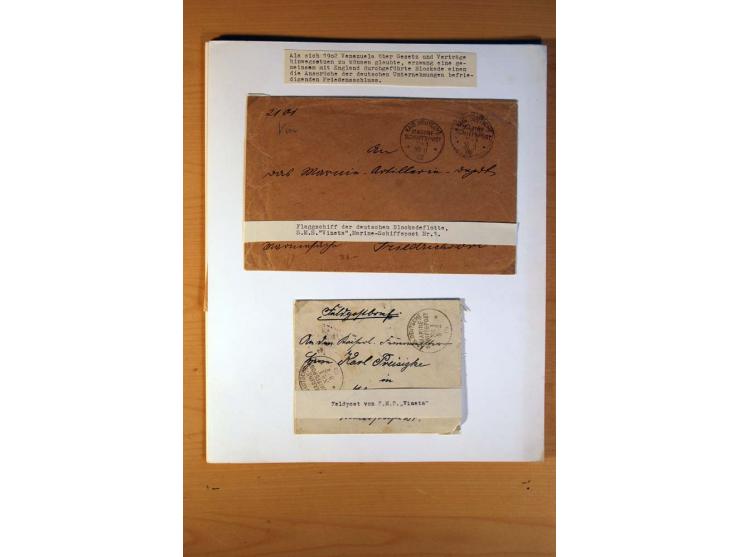 Als sich 1902 Venezuela über Gesetz und Verträge
hinwegsetzen zu können glaubte, erzwang eine ge-
meinsam mit England durchgeführte Blockade einen
die Ansprüche der deutschen Unternehmungen befrie-
digenden Friedensschluss.
KAIS. DEUTSCHE
MARINE
SCHIFFSPOST
An
das Marine-Artillerie-Depot
Flaggschiff der deutschen Blockadeflotte,
S.M.S."Vineta",Marine-Schiffspost Nr.1.
Marinesache Friedrichsort
Feldpostbrief
An den Kaiserl.
Herrn Karl Preisigke
in
Feldpost von S.M.S. „Vineta"